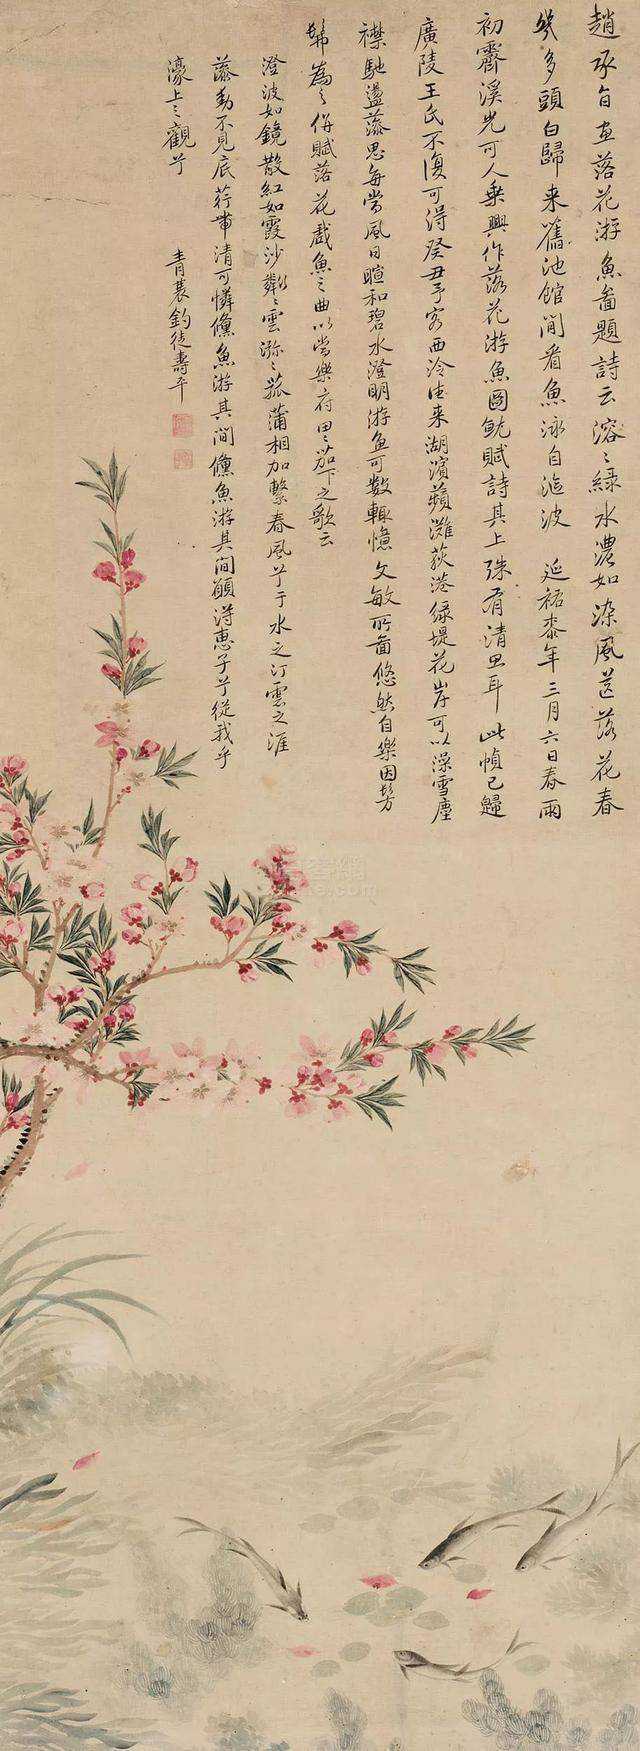 趙承旨畫落花游魚圖題詩云溶〻綠水濃如染風送落花春
幾多頭白歸来舊池館閒看魚泳自漚波 延祐柒年三月六日春雨
初霽溪光可人乗興作落花游魚圖就賦詩其上殊有清思耳此幀已歸
廣陵王氏不復可得癸丑予客西泠往来湖濱蘋灘荻港綠堤花岸可以澡雪塵
襟馳盪藻思每當風日暄和碧水澄明游魚可數輒憶文敏所圖悠然自樂因髣
髴為之併賦落花戲魚之曲以當樂府田〻茄下之歌云
澄波如鏡散紅如霞沙鄰〻雲瀰〻菰蒲相加繫春風兮于水之汀雲之涯
藻動不見底荇帶清可憐儵魚游其間儵魚游其間願得惠子兮從我乎
濠上之觀兮
青蓑釣徒壽平